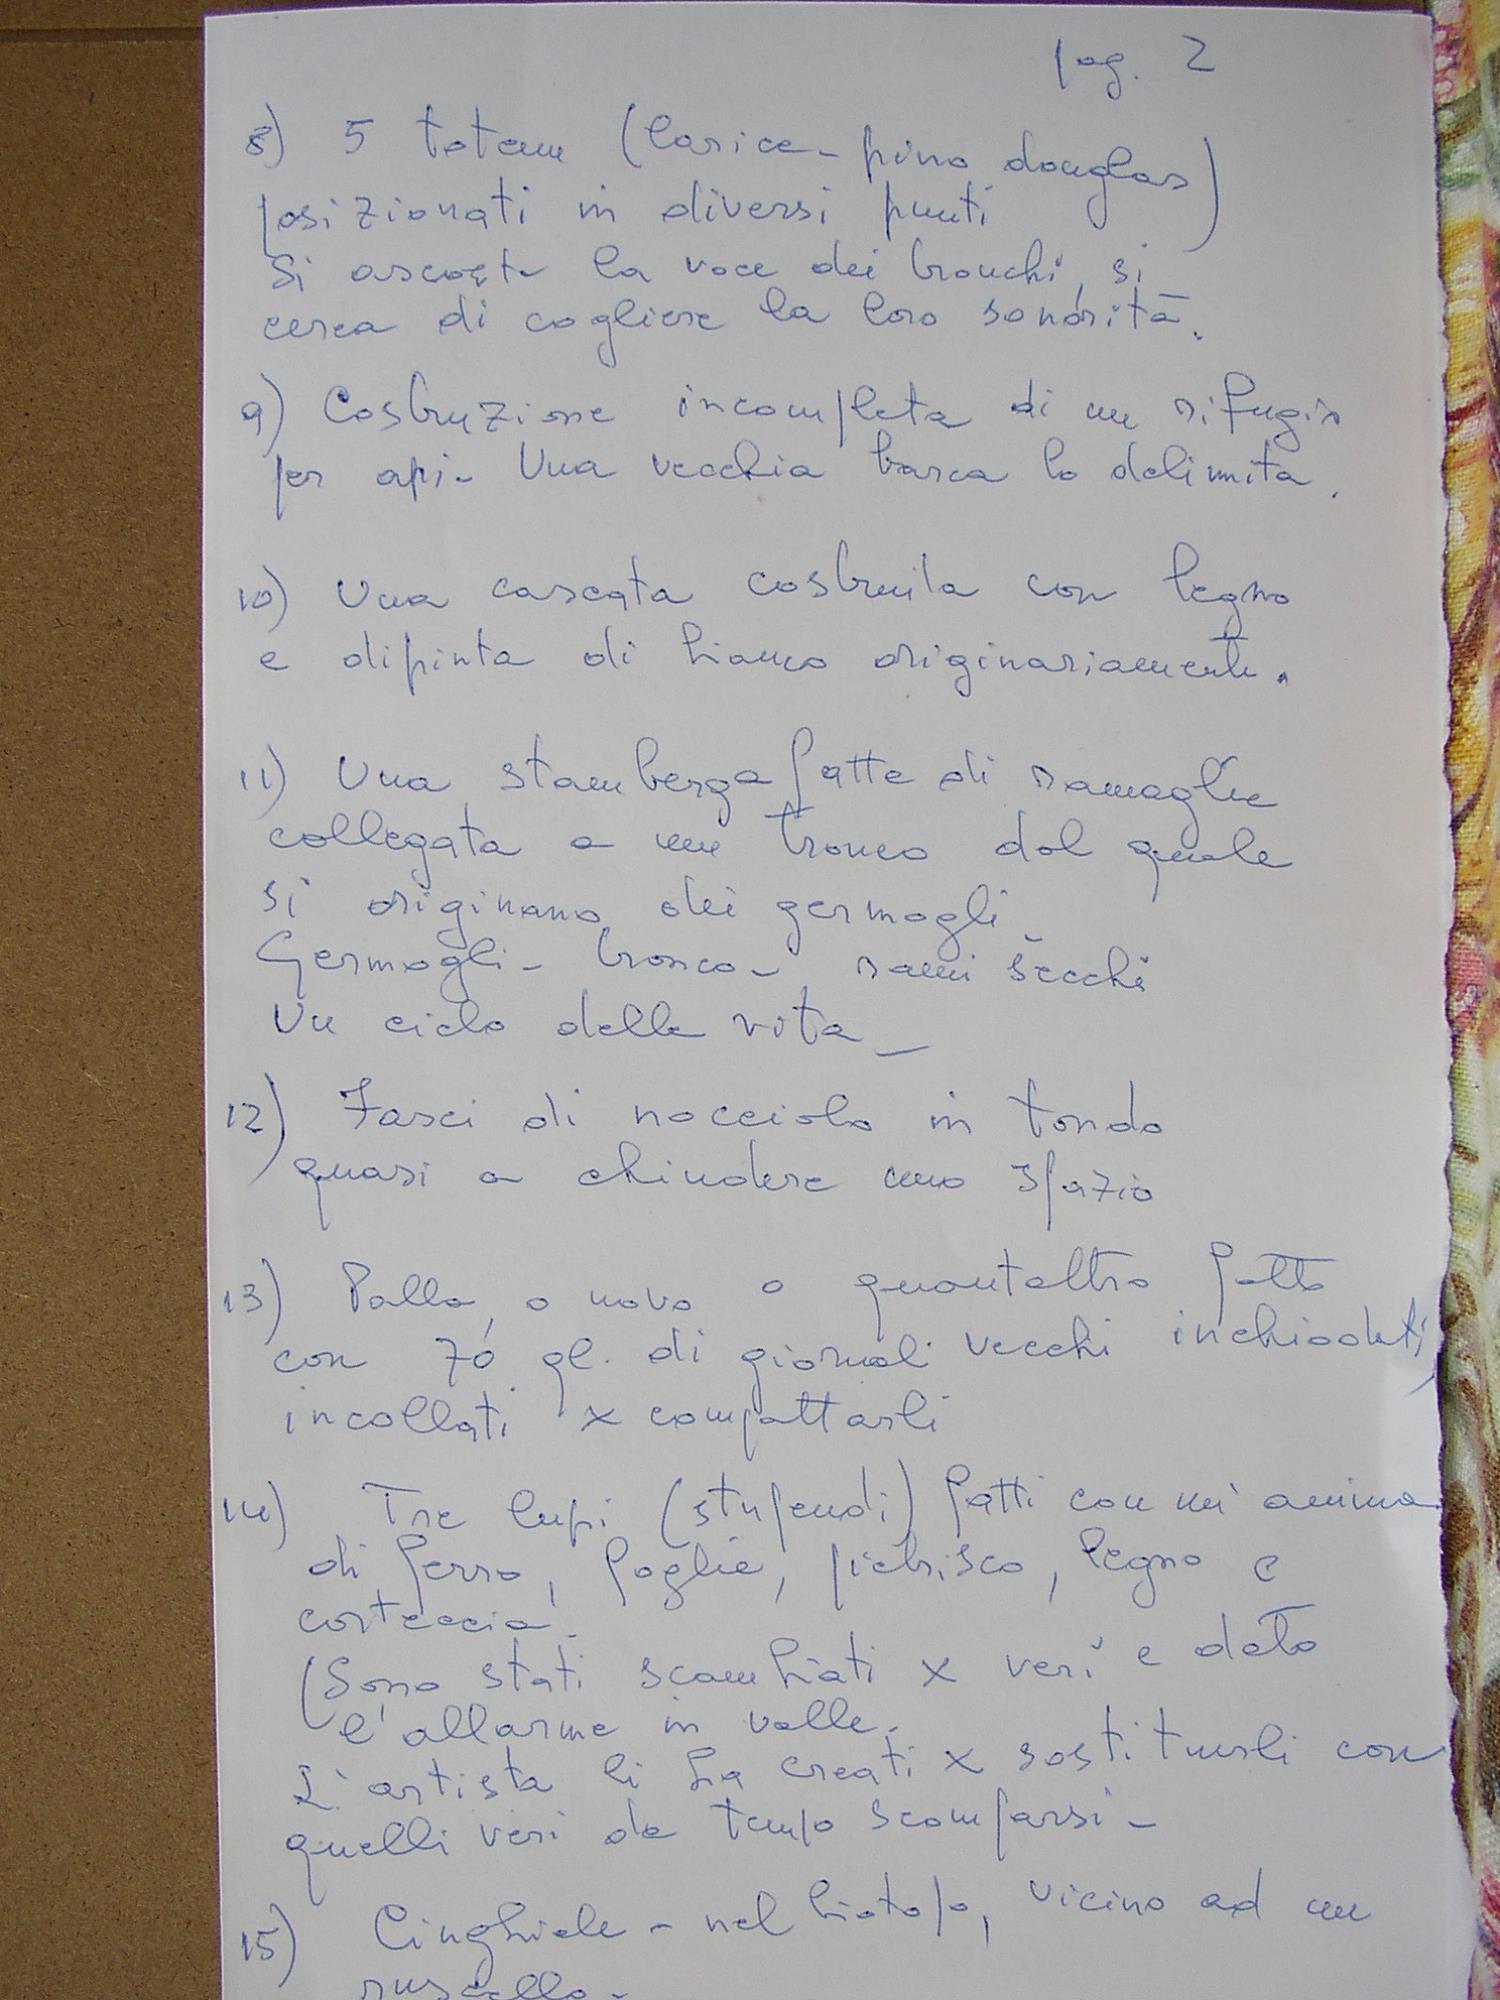 pag. 2
8) 5 totem (larice - pino douglas)
posizionati in diversi punti
Si ascolta la voce dei tronchi, si
cerca di cogliere la loro sonorità.
9) Costruzione incompleta di un rifugio
per api - Una vecchia barca lo delimita.
10) Una cascata costruita con legno
e dipinta di bianco originariamente.
11) Una stamberga fatta di ramaglie
collegata a un tronco dal quale
si originano dei germogli
Germogli - tronco - rami secchi
Un ciclo della vita -
12) Fasci di nocciolo in tondo
quasi a chiudere uno spazio
13) Palla, o uovo o quant'altro fatto
con 70 ql. di giornali vecchi inchiodati,
incollati x compattarli
14) Tre lupi (stupendi) fatti con un'anima
di ferro, foglie, pietrisco, legno e
corteccia.
(Sono stati scambiati x veri e dato
l'allarme in valle.
L'artista li ha creati x sostituirli con
quelli veri da tempo scomparsi -
15) Cinghiale - nel biotopo, vicino ad un
ruscello -